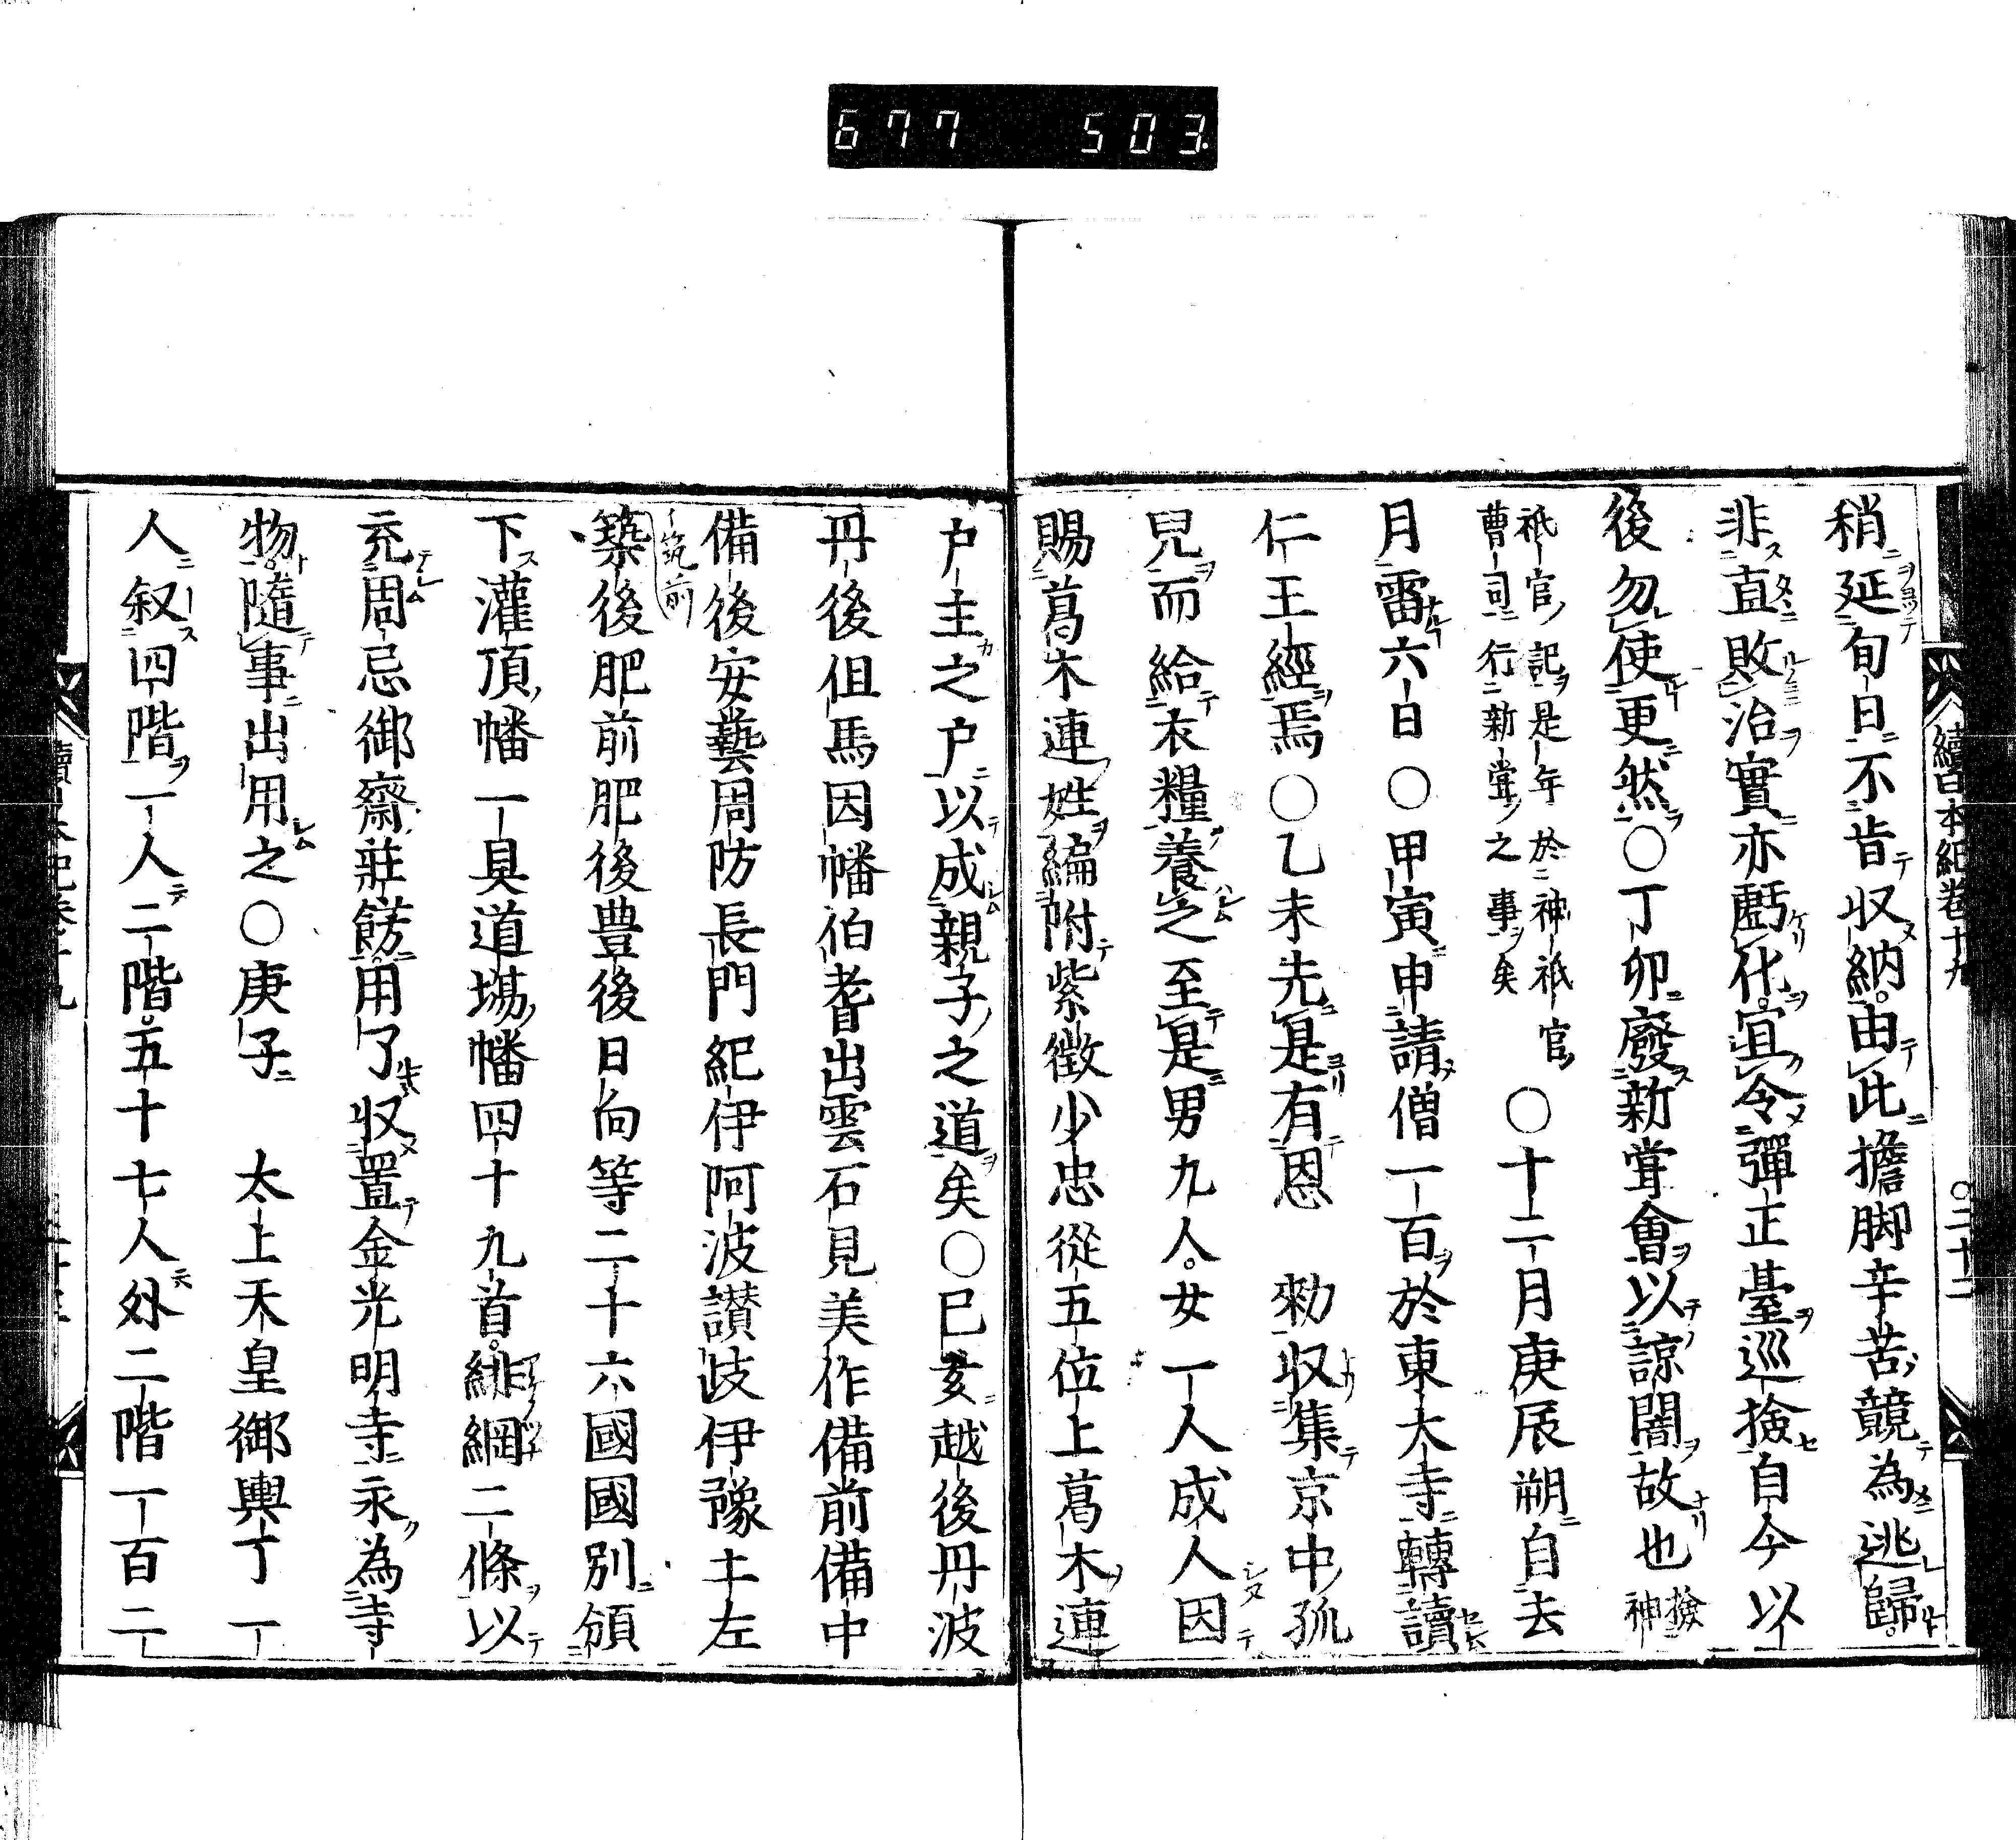 677 503
續日本紀卷十九
○二十二
稍延旬日不肯収納由此擔脚辛苦競為逃歸
非直敗治實亦虧化宜令彈正臺巡撿自今以
後勿使更然○丁卯廢新甞會以諒闇故也撿神
祇官記是年於神祇官
曹司行新甞之事矣
○十二月庚辰朔自去
月雷六日○甲寅申請僧一百於東大寺轉讀
仁王經焉○乙未先是有恩勑収集京中孤
兒而給衣糧養之至是男九人女一人成人因
賜葛木連姓編附紫微少忠從五位上葛木連
戸主之戸以成親子之道矣○己亥越後丹波
丹後但馬因幡伯耆出雲石見美作備前備中
備後安藝周防長門紀伊阿波讃岐伊豫土左
筑前
築後肥前肥後豊後日向等二十六國國別頒
下灌頂幡一具道場幡四十九首緋綱二條以
充周忌御齋莊餝用了収置金光明寺永為寺
物隨事出用之○庚子太上天皇御輿丁一
人叙四階一人二階五十七人外二階一百二